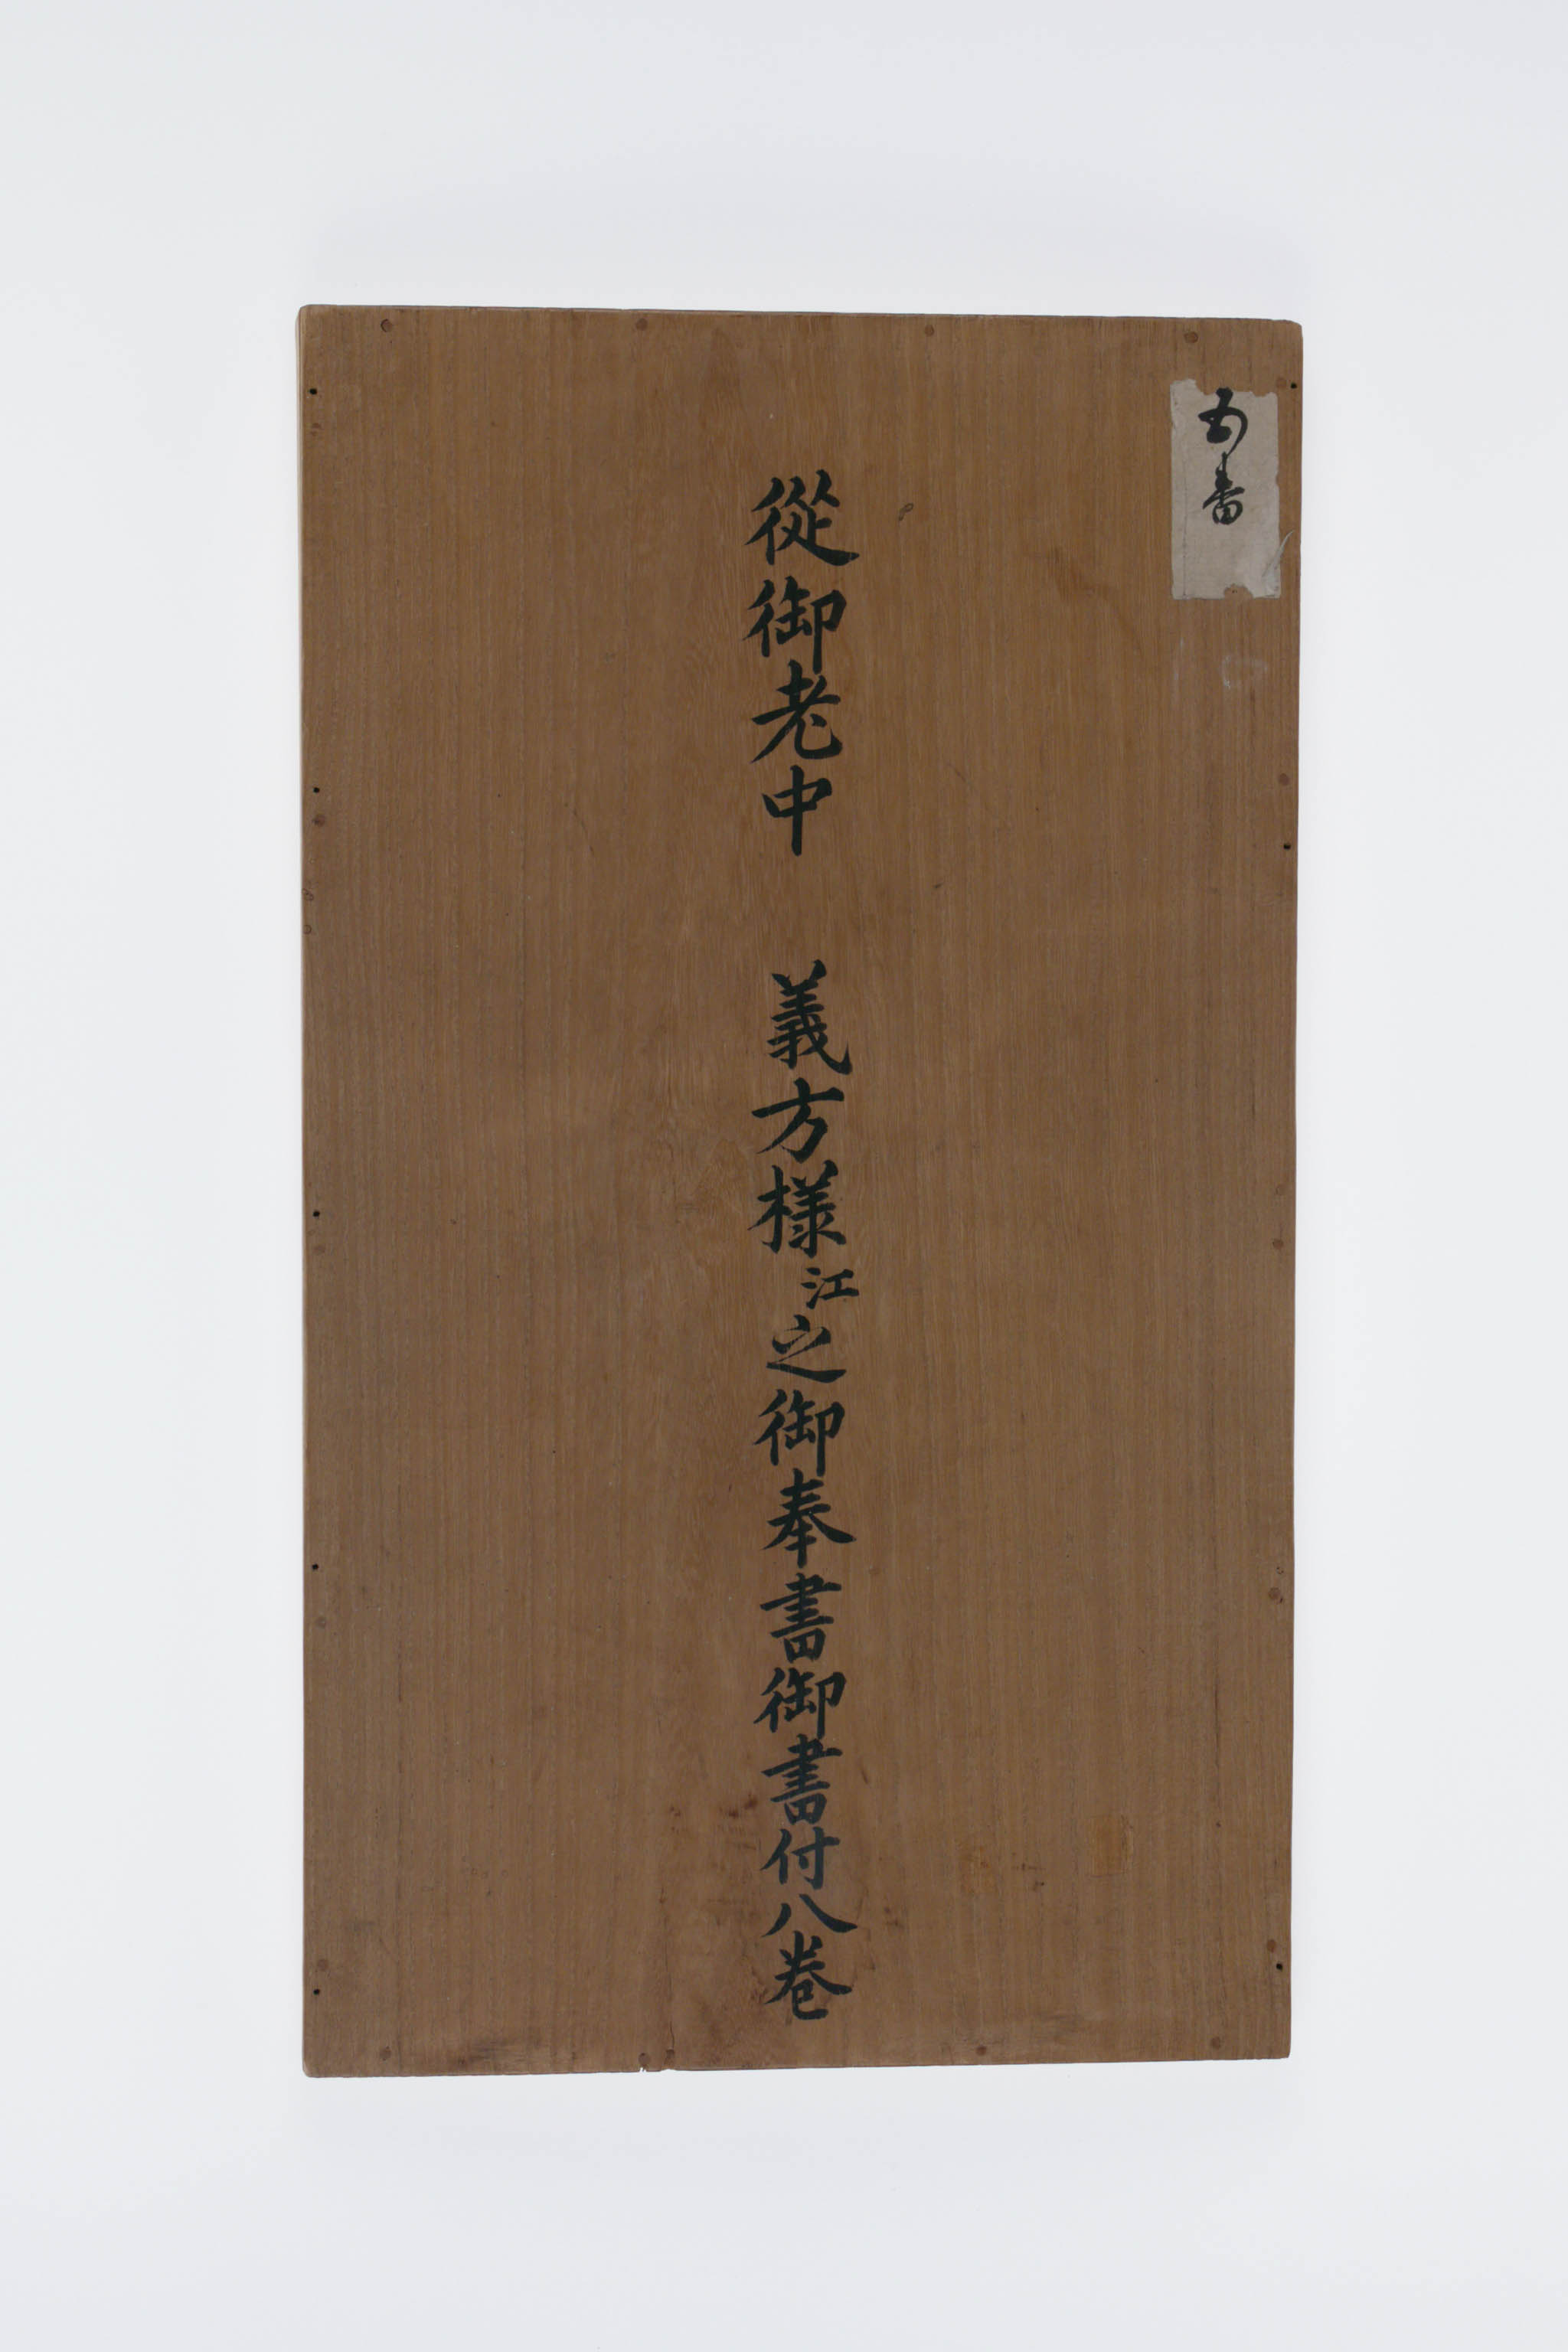 五番
從御老中　義方様江之御奉書御書付八巻